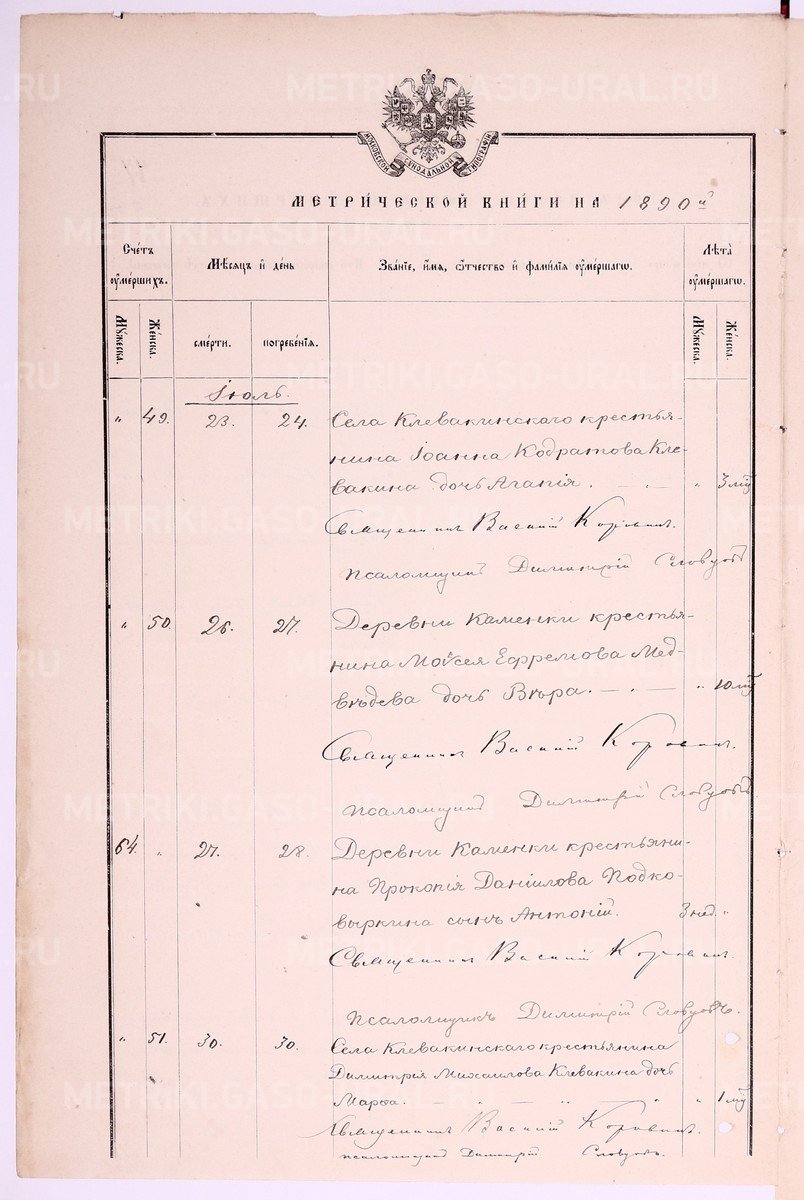 МОСКОВСКОЙ СѴНОДАЛЬНОЙ ТИПОГРАФІИ
МЕТРИ́ЧЕСКОЙ КНИ́ГИ НА 1890й
Сче́тъ ᲂу҆ме́ршихъ.
Мѣ́сяцъ и҆ де́нь
Зва́нїе, и҆́мѧ, ѻ҆́тчество и҆ фами́лїѧ ᲂу҆ме́ршагѡ.
Лѣта̀ ᲂу҆ме́ршагѡ.
Мꙋ́жеска.
Же́нска.
сме́рти.
погребе́нїѧ.
Мꙋ́жеска.
Же́нска.
Іюль.
" 49. 23. 24. Села Клевакинскаго крестья-
нина Іоанна Кодратова Кле-
вакина дочь Агапія. — " — " 3 мѣ
Священникъ Василій Коровинъ.
Псаломщикъ Димитрій Словцовъ
" 50. 26. 27. Деревни Каменки крестья-
нина Моисея Ефремова Мед-
вѣдева дочь Вѣра. — " — " 10 мѣ
Священникъ Василій Коровинъ.
Псаломщикъ Димитрій Словцовъ.
64. " 27. 28. Деревни Каменки крестьяни-
на Прокопія Даніилова Подко-
выркина сынъ Антоній. 3 нед. "
Священникъ Василій Коровинъ.
Псаломщикъ Димитрій Словцовъ.
" 51. 30. 30. Села Клевакинскаго крестьянина
Димитрія Михаилова Клевакина дочь
Марѳа. — " — " — " " 1 мѣ
Священникъ Василій Коровинъ.
псаломщикъ Димитрій Словцовъ.
METRIKI.GASO-URAL.RU